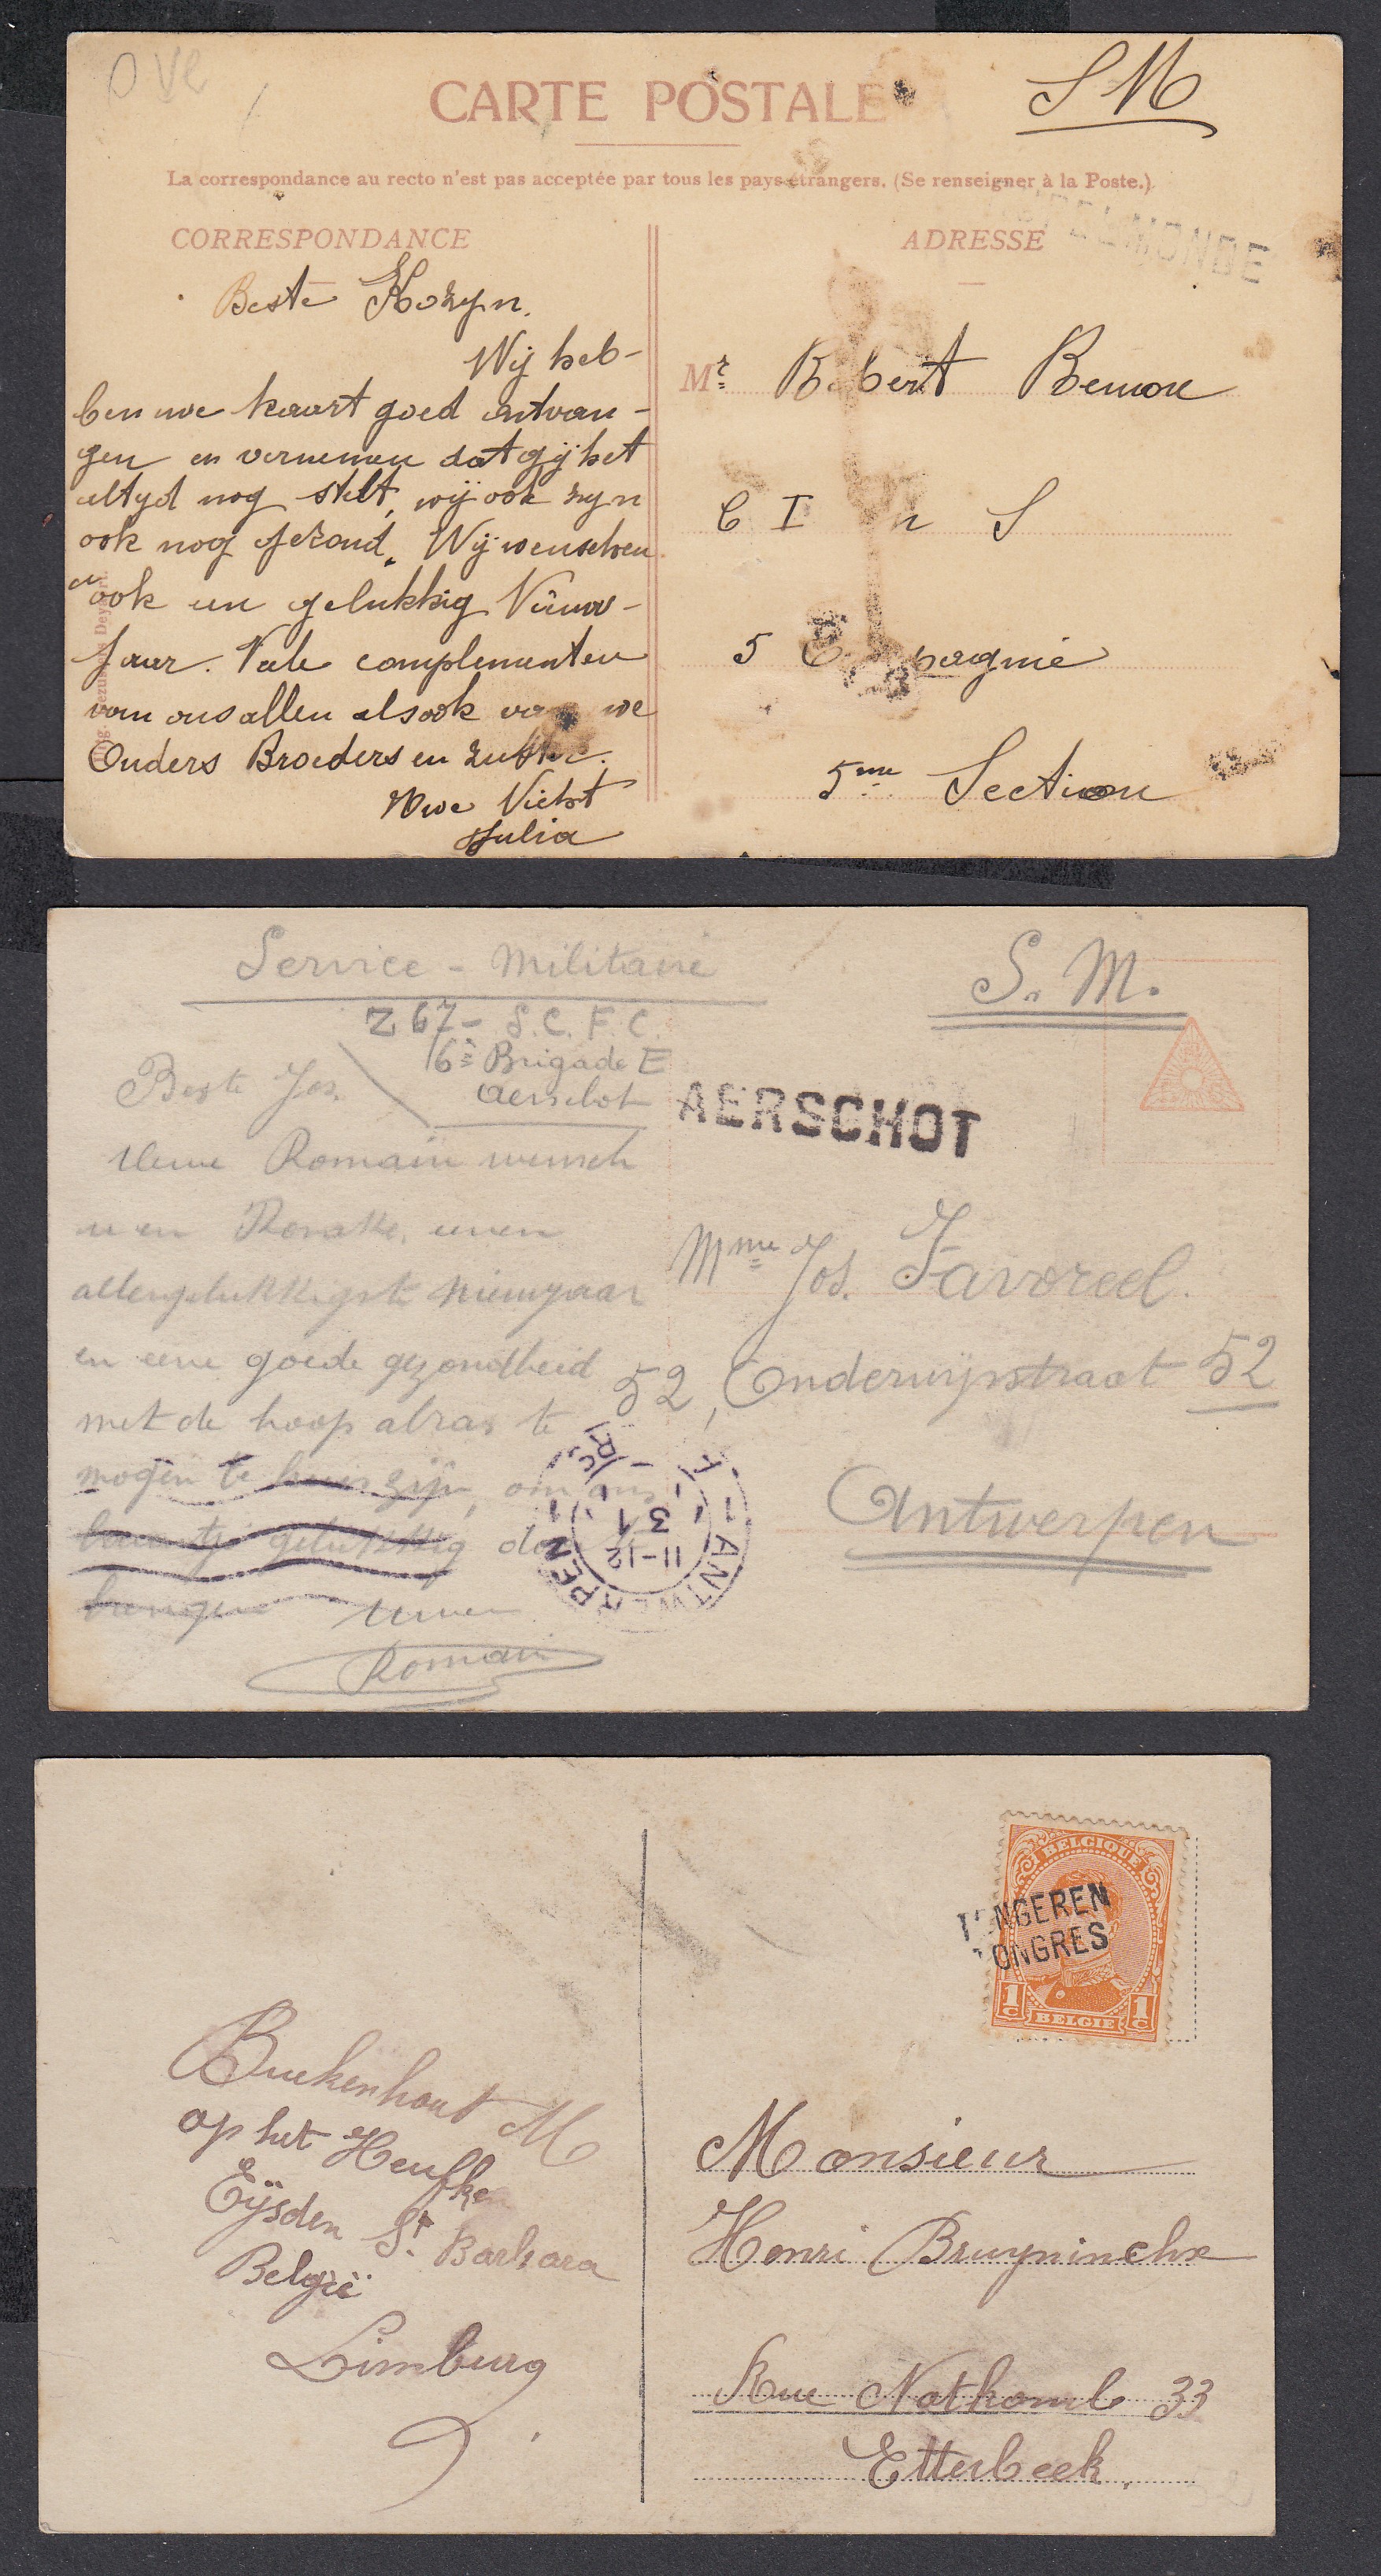 CARTE POSTALE
SM
La correspondance au recto n'est pas acceptée par tous les pays étrangers. (Se renseigner à la Poste.)
CORRESPONDANCE
ADRESSE
MONDE
Beste Kozyn.
Wij heb-
ben uwe kaart goed ontvan-
gen en vernemen dat gij het
altyd nog stelt, wij ook zyn
ook nog gezond. Wij wenschen
u ook een gelukkig Nieuw-
Jaar. Vele complementen
van ons allen alsook van uwe
Ouders Broeders en zuster.
Uwe Nicht
Julia
Mr Robert
C I n S
5 Compagnie
5me Section
Service - Militaire
S. M.
Z 67 - S.C.F.C.
6e Brigade E
Aerschot
AERSCHOT
Beste Jos.
Uwe Romain wensch
u en eenen
allergelukkigste nieuwjaar
en eene goede gezondheid
met de hoop alras te
mogen te huis zijn, om ons
gelukkig
Uwen
Romain
Mme Jos. Favoreel.
52, Onderwijsstraat 52
Antwerpen
ANTWERPEN
11-12
31
BELGIQUE
NGEREN
ONGRES
1c 1c
BELGIE
Buekenhout M
op het Heufken
Eÿsden St Barbara
België
Limburg
Monsieur
Henri Bruyninckx
Rue Nothomb 33
Etterbeek.